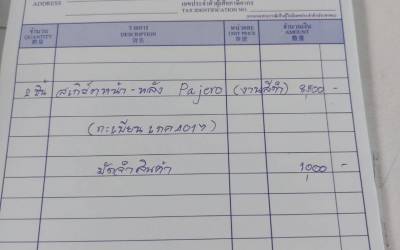 ADDRESS
เลขประจำตัวผู้เสียภาษีอากร
TAX IDENTIFICATION NO.
จำนวน รายการ หน่วยละ จำนวนเงิน
QUANTITY DESCRIPTION UNIT PRICE AMOUNT
數量 項目 單價 數量
2 ชิ้น สเกิร์ตหน้า-หลัง Pajero (งานสีดำ) 8,500 -
(ทะเบียน
มัดจำสินค้า 1,000 -